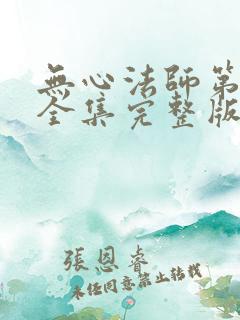 無心法師第
全集完整版
張恩睿
未經同意禁止轉載